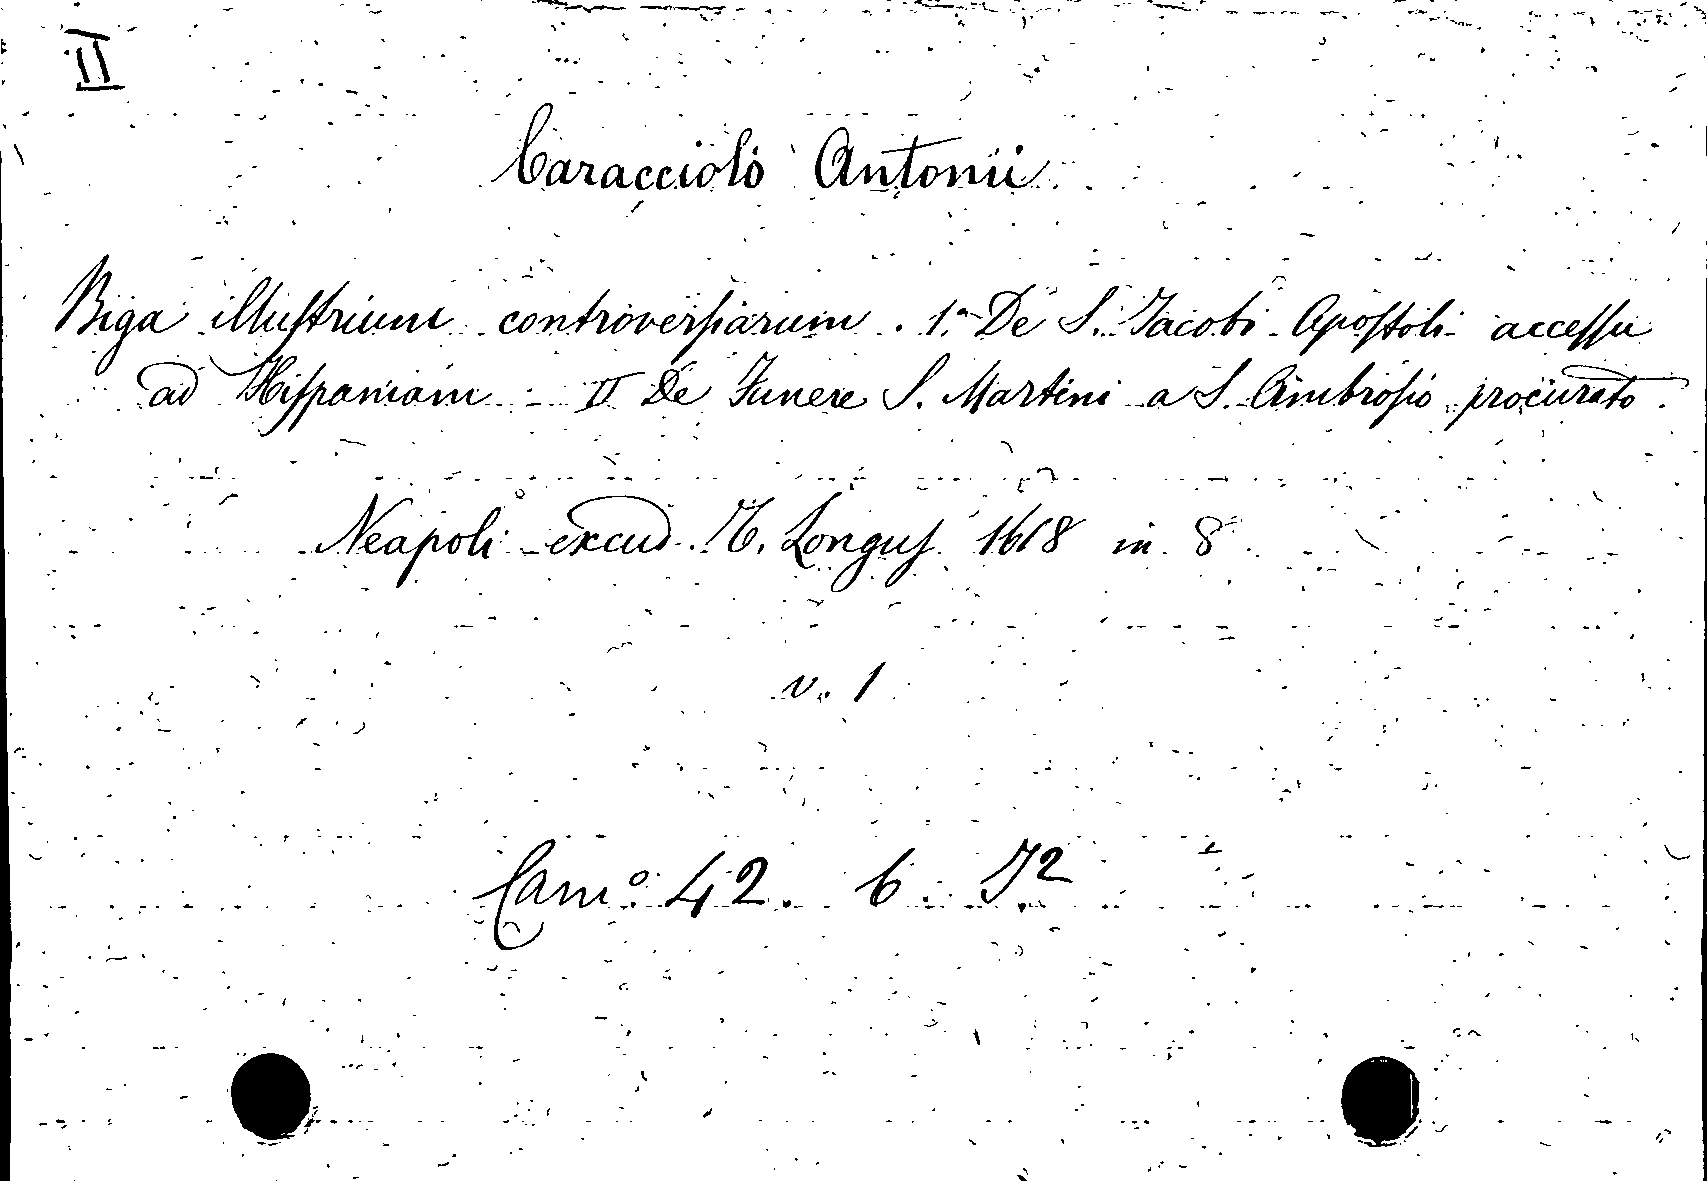 II
Caracciolo Antonii
Biga illustrium controversiarum. 1.ª De S. Jacobi Apostoli accessu
ad Hispaniam II De Funere S. Martini a S. Ambrosio procurato.
Neapoli excud. T. Longus 1618 in 8º
v. 1
Cam.º 42. 6.